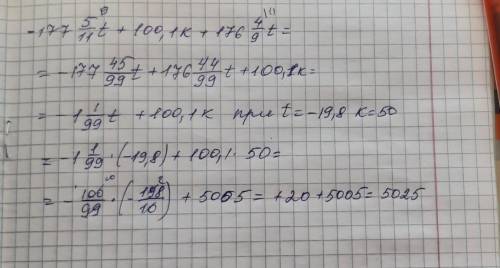 -177 5/11 t + 100,1к + 176 4/9 t =
= -177 45/99 t + 176 44/99 t + 100,1к =
= -1 1/99 t + 100,1к при t = -19,8 к=50
= -1 1/99 · (-19,8) + 100,1 · 50 =
= -100/99 · (-198/10) + 5005 = +20 + 5005 = 5025